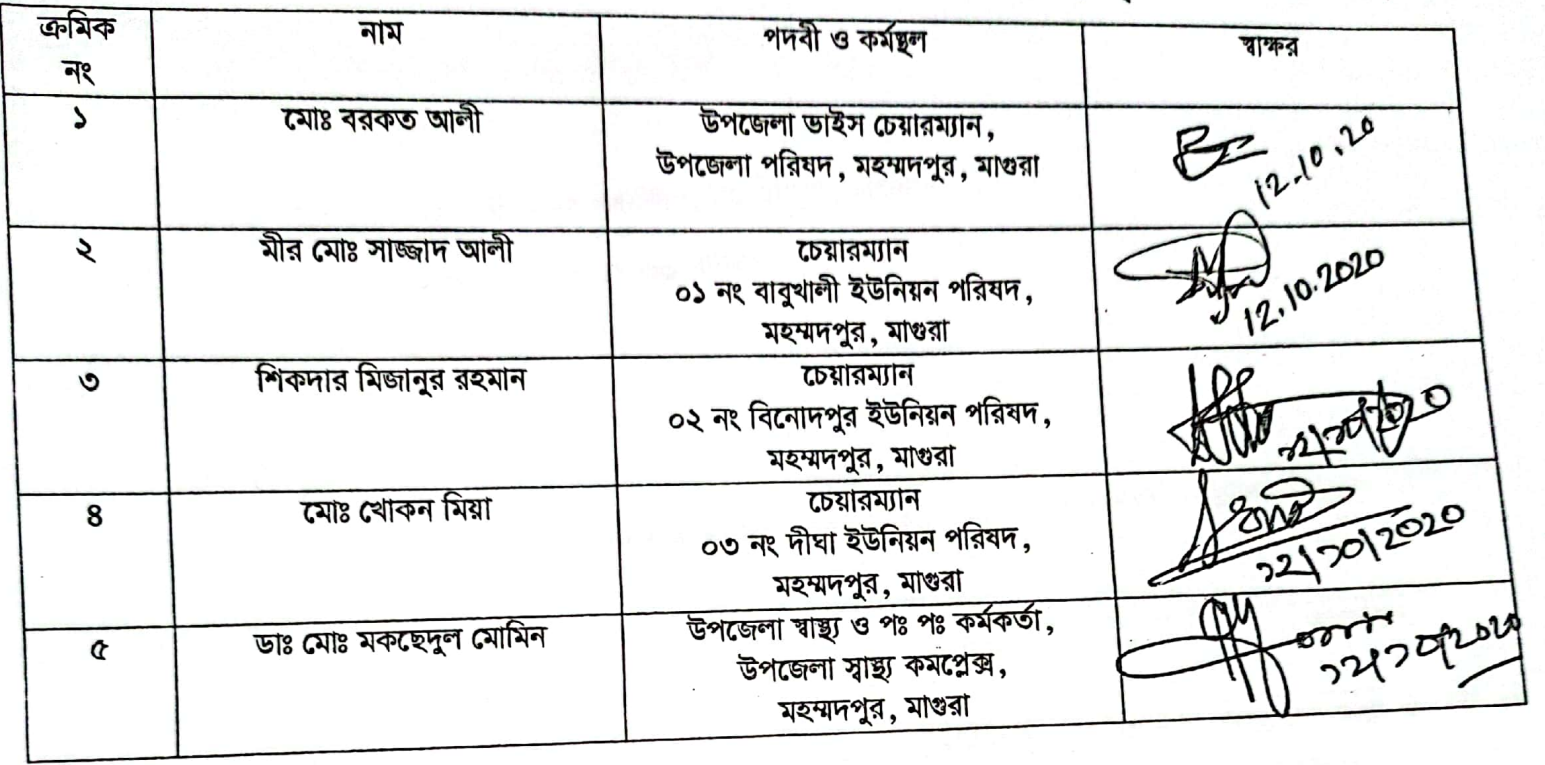 ক্রমিক নং	নাম	পদবী ও কর্মস্থল	স্বাক্ষর
১	মোঃ বরকত আলী	উপজেলা ভাইস চেয়ারম্যান,
উপজেলা পরিষদ, মহম্মদপুর, মাগুরা
12.10.20
২	মীর মোঃ সাজ্জাদ আলী	চেয়ারম্যান
০১ নং বাবুখালী ইউনিয়ন পরিষদ,
মহম্মদপুর, মাগুরা
12.10.2020
৩	শিকদার মিজানুর রহমান	চেয়ারম্যান
০২ নং বিনোদপুর ইউনিয়ন পরিষদ,
মহম্মদপুর, মাগুরা
৪	মোঃ খোকন মিয়া	চেয়ারম্যান
০৩ নং দীঘা ইউনিয়ন পরিষদ,
মহম্মদপুর, মাগুরা
১২/১০/2020
৫	ডাঃ মোঃ মকছেদুল মোমিন	উপজেলা স্বাস্থ্য ও পঃ পঃ কর্মকর্তা,
উপজেলা স্বাস্থ্য কমপ্লেক্স,
মহম্মদপুর, মাগুরা